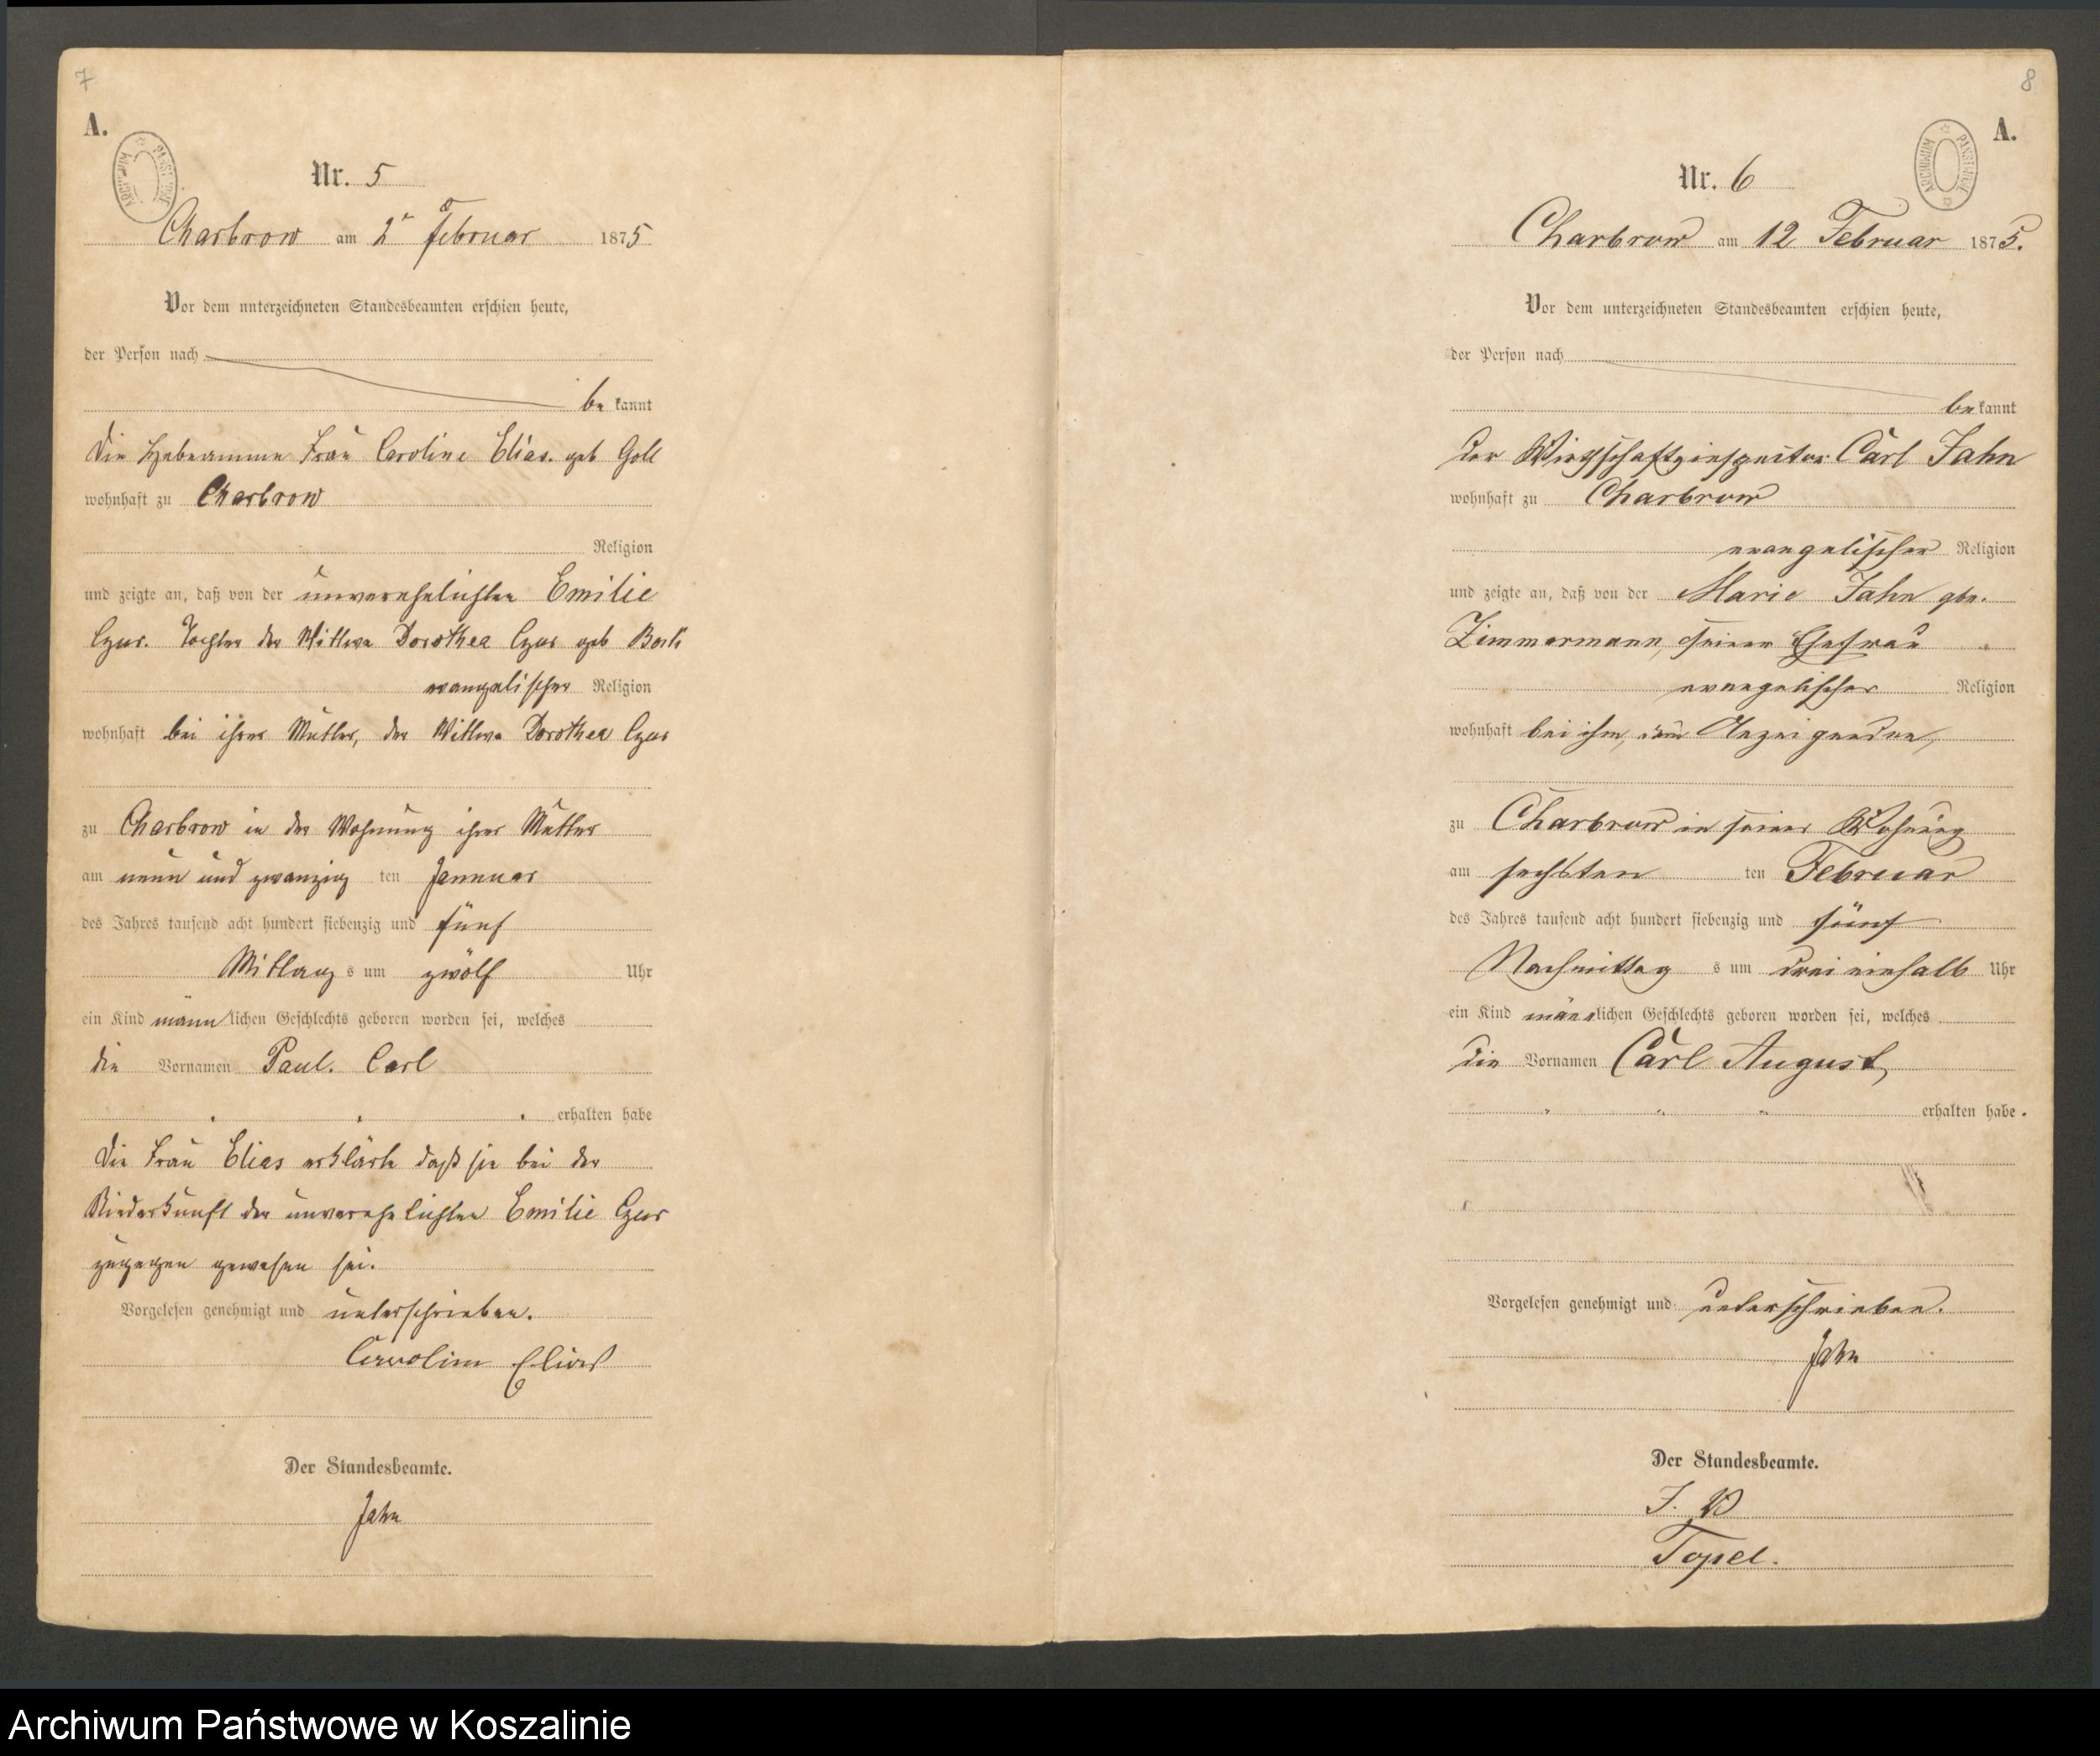 7
A.
ARCHIWUM PAŃSTWOWE
Nr. 5
Charbrow am 2ᵗ Februar 1875
Vor dem unterzeichneten Standesbeamten erschien heute,
der Person nach
be kannt
die Hebeamme Frau Caroline Elias. geb Goll
wohnhaft zu Charbrow
Religion
und zeigte an, daß von der unverehelichten Emilie
Czus. Tochter der Wittwe Dorothea Czus geb
evangelischer Religion
wohnhaft bei ihrer Mutter, der Wittwe Dorothea Czus
zu Charbrow in der Wohnung ihrer Mutter
am neun und zwanzig ten Januar
des Jahres tausend acht hundert siebenzig und fünf
Mittag s um zwölf Uhr
ein Kind männlichen Geschlechts geboren worden sei, welches
die Vornamen Paul. Carl
erhalten habe
Die Frau Elias erklärte daß sie bei der
Niederkunft der unverehelichten Emilie Czus
zugegen gewesen sei.
Vorgelesen genehmigt und unterschrieben.
Caroline Elias
Der Standesbeamte.
Jahn
8
A.
ARCHIWUM PAŃSTWOWE
Nr. 6
Charbrow am 12 Februar 1875.
Vor dem unterzeichneten Standesbeamten erschien heute,
der Person nach
bekannt
der Wirthschaftsinspector Carl Jahn
wohnhaft zu Charbrow
evangelischer Religion
und zeigte an, daß von der Marie Jahn gbe.
Zimmermann, seiner Ehefrau
evangelischer Religion
wohnhaft bei ihm, dem Anzeigenden,
zu Charbrow in seiner Wohnung
am sechsten ten Februar
des Jahres tausend acht hundert siebenzig und fünf
Nachmittag s um drei einhalb Uhr
ein Kind männlichen Geschlechts geboren worden sei, welches
die Vornamen Carl August,
erhalten habe.
Vorgelesen genehmigt und unterschrieben.
Jahn
Der Standesbeamte.
J. V
Topel.
Archiwum Państwowe w Koszalinie